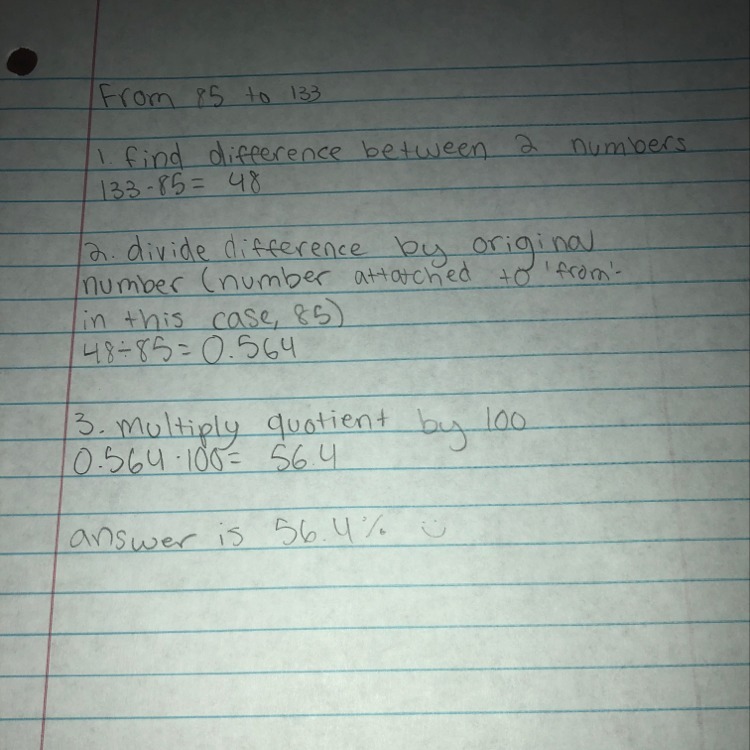 From 85 to 133
1. find difference between 2 numbers
133-85= 48
2. divide difference by original
number (number attatched to 'from'-
in this case, 85)
48÷85= 0.564
3. multiply quotient by 100
0.564·100= 56.4
answer is 56.4% :)